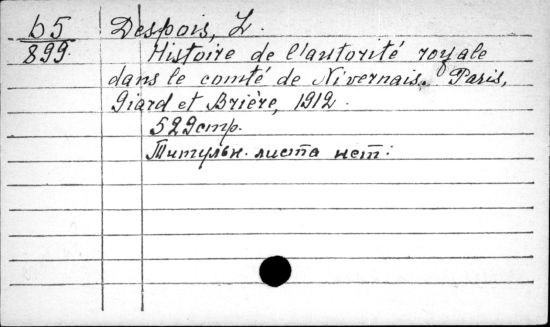 b5 Despois, L.
899. Histoire de l'autorité royale
dans le comté de Nivernais. Paris,
Giard et Brière, 1912.
529стр.
Титульн. листа нет.